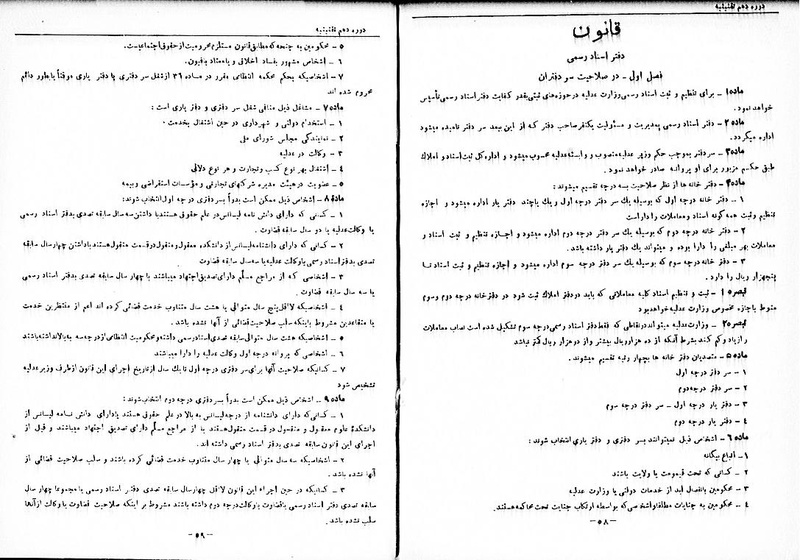 دوره دهم تقنینیه
قانون
دفتر اسناد رسمی
فصل اول - در صلاحیت سر دفتران
ماده۱ - برای تنظیم و ثبت اسناد رسمی وزارت عدلیه درحوزه‌های ثبتی بقدر کفایت دفتر اسناد رسمی تأسیس
خواهد نمود.
ماده۲ - دفتر اسناد رسمی بمدیریت و مسئولیت یکنفر صاحب دفتر که از این ببعد سر دفتر نامیده میشود
اداره میگردد.
ماده۳ - سر دفتر بموجب حکم وزیر عدلیه منصوب و وابسته عدلیه محسوب میشود و اداره کل ثبت اسناد و املاک
طبق حکم مزبور برای او پروانه صادر خواهد نمود.
ماده۴ - دفتر خانه ها از نظر صلاحیت بسه درجه تقسیم میشوند:
۱ - دفتر خانه درجه اول که بوسیله یک سر دفتر درجه اول و یک یا چند دفتر یار اداره میشود و اجازه
تنظیم و ثبت همه گونه اسناد و معاملات را دارا است
۲ - دفتر خانه درجه دوم که بوسیله یک سر دفتر درجه دوم اداره میشود و اجازه تنظیم و ثبت اسناد و
معاملات بهر مبلغی را دارا بوده و میتواند یک دفتر یار داشته باشد.
۳ - دفتر خانه درجه سوم که بوسیله یک سر دفتر درجه سوم اداره میشود و اجازه تنظیم و ثبت اسناد تا
پنجهزار ریال را دارد.
تبصره۱ - ثبت و تنظیم اسناد کلیه معاملاتی که باید در دفتر املاک ثبت شود در دفتر خانه درجه دوم و سوم
منوط باجازه مخصوص وزارت عدلیه خواهد بود
تبصره۲ - وزارت عدلیه میتواند در نقاطی که فقط دفتر اسناد رسمی درجه سوم تشکیل شده است نصاب معاملات
را زیاد و کم کند بشرط آنکه از ده هزار ریال بیشتر و از دو هزار ریال کمتر نباشد
ماده۵ - متصدیان دفتر خانه ها بچهار رتبه تقسیم میشوند.
۱ - سر دفتر درجه اول
۲ - سر دفتر درجه دوم
۳ - دفتر یار درجه اول - سر دفتر درجه سوم
۴ - دفتر یار درجه دوم
ماده۶ - اشخاص ذیل نمیتوانند بسر دفتری و دفتر یاری انتخاب شوند:
۱ - اتباع بیگانه
۲ - کسانی که تحت قیمومت یا ولایت باشند
۳ - محکومین بانفصال ابد از خدمات دولتی یا وزارت عدلیه
۴ - محکومین به جنایات مطلقا و اشخاصی که بواسطه ارتکاب جنایت تحت محاکمه هستند.
- ۵۸ -
دوره دهم تقنینیه
۵ - محکومین به جنحه که مطابق قانون مستلزم محرومیت از حقوق اجتماعیست.
۶ - اشخاص مشهور بفساد اخلاق و یا معتاد بافیون.
۷ - اشخاصیکه بحکم محکمه انتظامی مقرر در ماده ۳۶ از شغل سر دفتری یا دفتر یاری موقتاً یا بطور دائم
محروم شده اند
ماده۷ - مشاغل ذیل منافی شغل سر دفتری و دفتر یاری است:
۱ - استخدام دولتی و شهرداری در حین اشتغال بخدمت.
۲ - نمایندگی مجلس شورای ملی
۳ - وکالت در عدلیه
۴ - اشتغال بهر نوع کسب و تجارت و هر نوع دلالی
۵ - عضویت در هیئت مدیره شرکتهای تجارتی و مؤسسات استقراضی و بیمه
ماده۸ - اشخاص ذیل ممکن است بدواً بسر دفتری درجه اول انتخاب شوند:
۱ - کسانی که دارای دانش نامه لیسانس در علم حقوق هستند با داشتن سه سال سابقه تصدی بدفتر اسناد رسمی
یا وکالت عدلیه یا دو سال سابقه قضاوت.
۲ - کسانی که دارای دانشنامه لیسانس از دانشکده معقول و منقول در قسمت منقول هستند با داشتن چهار سال سابقه
تصدی بدفتر اسناد رسمی یا وکالت عدلیه یا سه سال سابقه قضاوت
۳ - اشخاصی که از مراجع مسلم دارای تصدیق اجتهاد میباشند با چهار سال سابقه تصدی بدفتر اسناد رسمی
یا سه سال سابقه قضاوت
۴ - اشخاصیکه لااقل پنج سال متوالی یا هشت سال متناوب خدمت قضائی کرده اند اعم از منتظرین خدمت
یا متقاعدین مشروط باینکه سلب صلاحیت قضائی از آنها نشده باشد.
۵ - اشخاصیکه هشت سال متوالی سابقه تصدی اسناد رسمی داشته و محکومیت انتظامی از درجه سه به بالا نداشته باشند
۶ - اشخاصی که پروانه درجه اول وکالت عدلیه را دارا میباشند
۷ - کسانیکه صلاحیت آنها برای سر دفتری درجه اول تا یک سال از تاریخ اجرای این قانون از طرف وزیر عدلیه
تشخیص شود
ماده۹ - اشخاص ذیل ممکن است بدواً بسر دفتری درجه دوم انتخاب شوند:
۱ - کسانی که دارای دانشنامه از درجه لیسانس به بالا در علم حقوق هستند یا دارای دانش نامه لیسانس از
دانشکده علوم معقول و منقول در قسمت منقول هستند یا از مراجع مسلم دارای تصدیق اجتهاد میباشند و قبل از
اجرای این قانون سابقه تصدی بدفتر اسناد رسمی داشته اند.
۲ - اشخاصیکه سه سال متوالی یا چهار سال متناوب خدمت قضائی کرده باشند و سلب صلاحیت قضائی از
آنها نشده باشد.
۳ - کسانیکه در حین اجراء این قانون لااقل چهار سال سابقه تصدی دفتر اسناد رسمی یا مجموعا چهار سال
سابقه تصدی دفتر اسناد رسمی یا قضاوت یا وکالت درجه دوم داشته باشند مشروط بر اینکه صلاحیت قضاوت یا وکالت از آنها
سلب نشده باشد.
- ۵۹ -